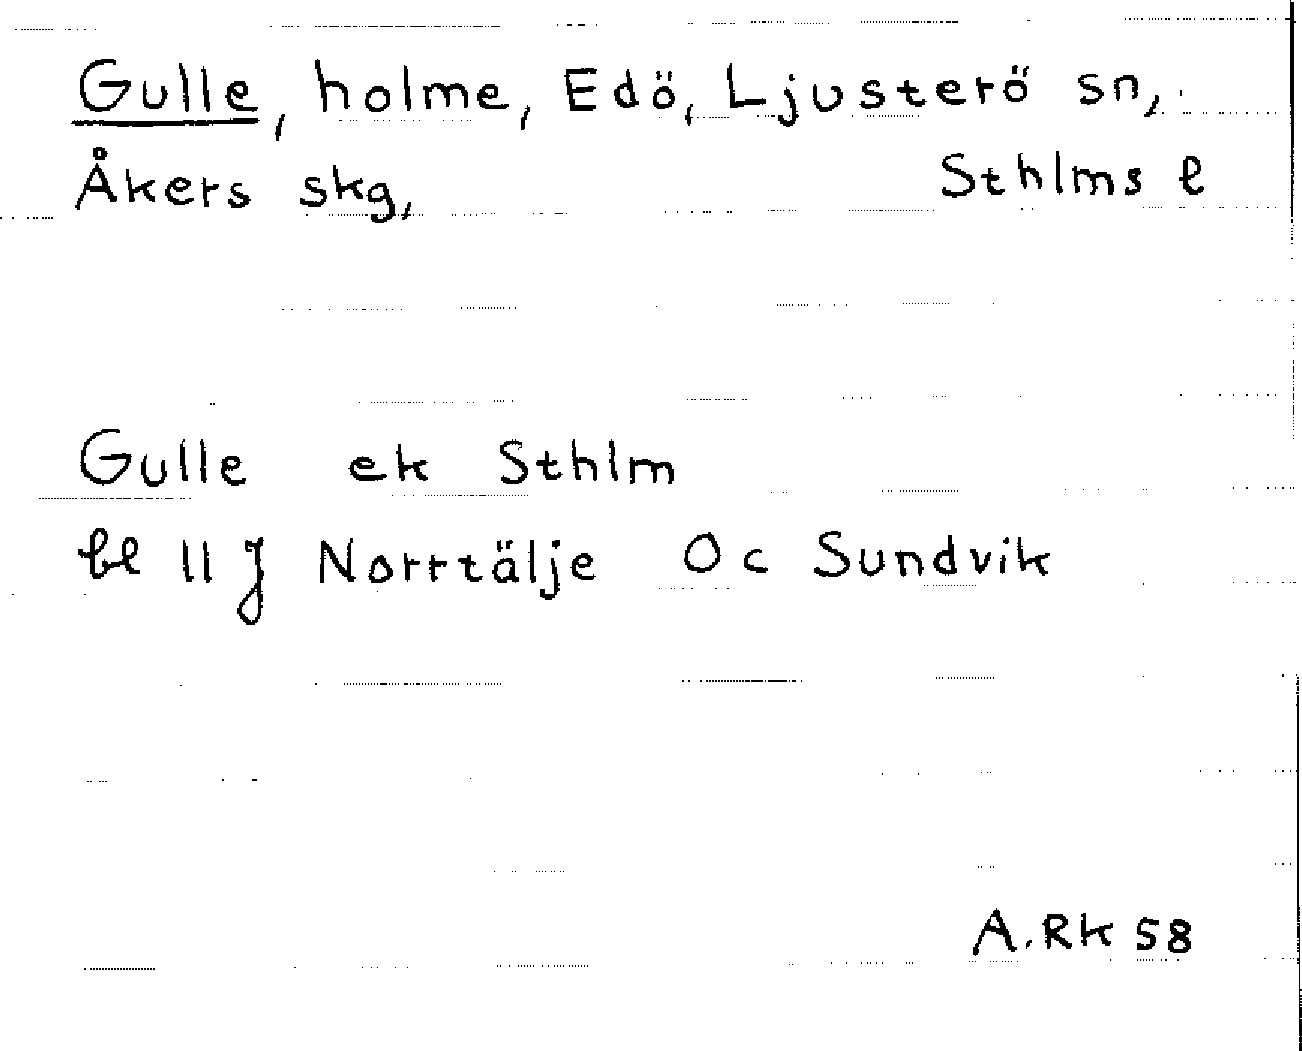 Gulle, holme, Edö, Ljusterö sn,
Åkers skg, Sthlms l
Gulle ek Sthlm
bl 11 J Norrtälje Oc Sundvik
A. Rk 58